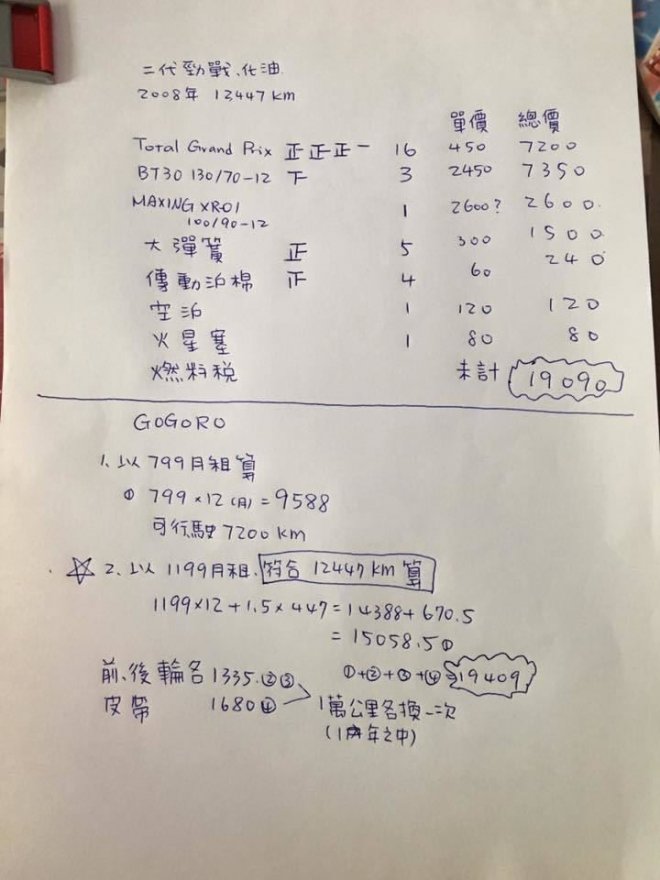 二代勁戰、化油
2008年 12447 km
單價 總價
Total Grand Prix 正正正一 16 450 7200
BT30 130/70-12 下 3 2450 7350
MAXING XR01 1 2600? 2600
100/90-12
大彈簧 正 5 300 1500
傳動油棉 正 4 60 240
空油 1 120 120
火星塞 1 80 80
燃料稅 未計 19090
GOGORO
1. 以799月租算
① 799×12(月)=9588
可行駛7200 km
☆ 2. 以1199月租, 符合 12447 km 算
1199×12+1.5×447=14388+670.5
=15058.5①
前、後輪各1335.②③ ①+②+③+④ 19409
皮帶 1680④ 1萬公里各換一次
(1年之中)